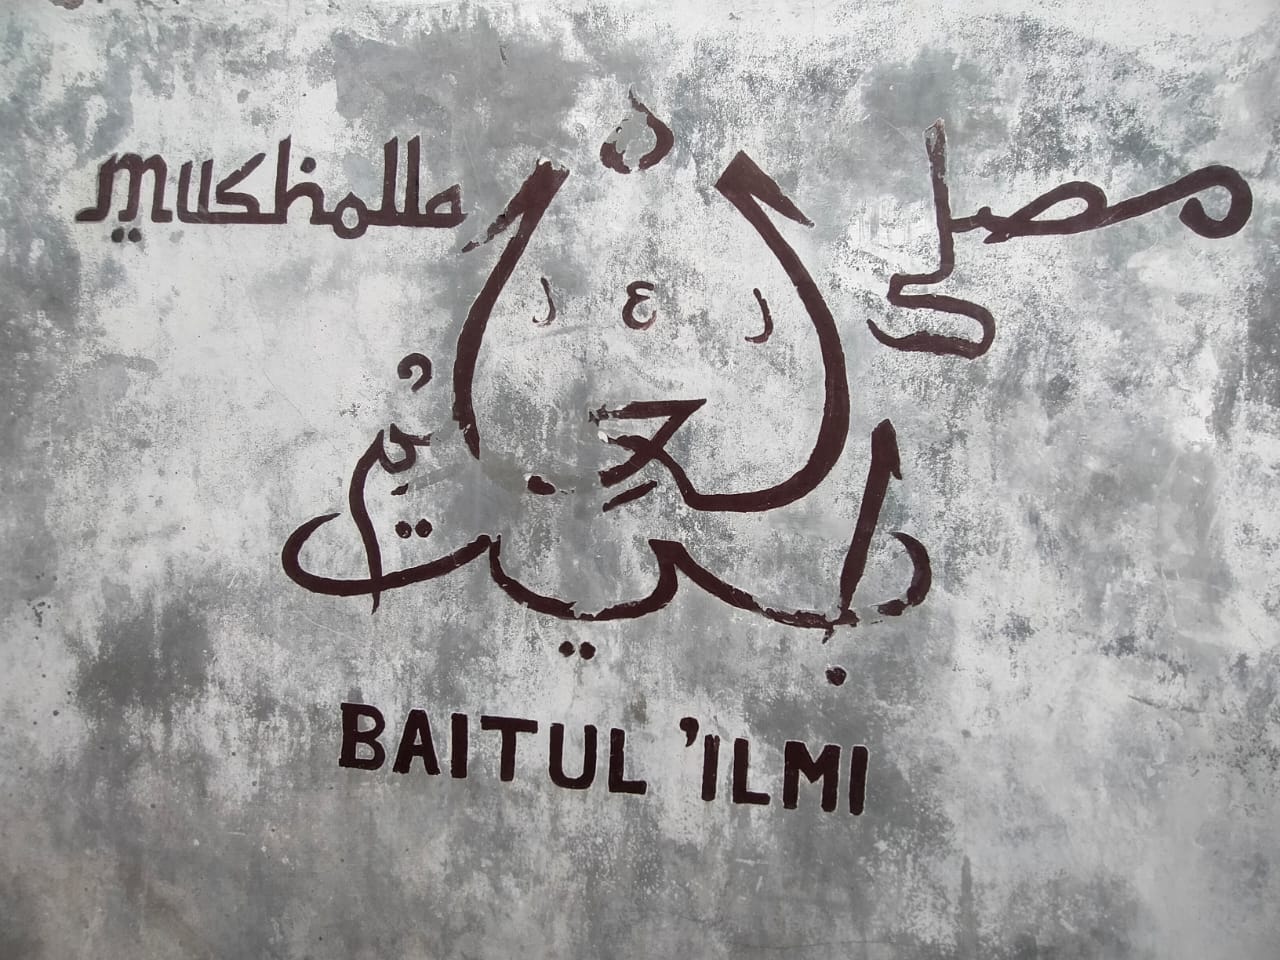 musholla
مصلى
بيت العلم
BAITUL 'ILMI